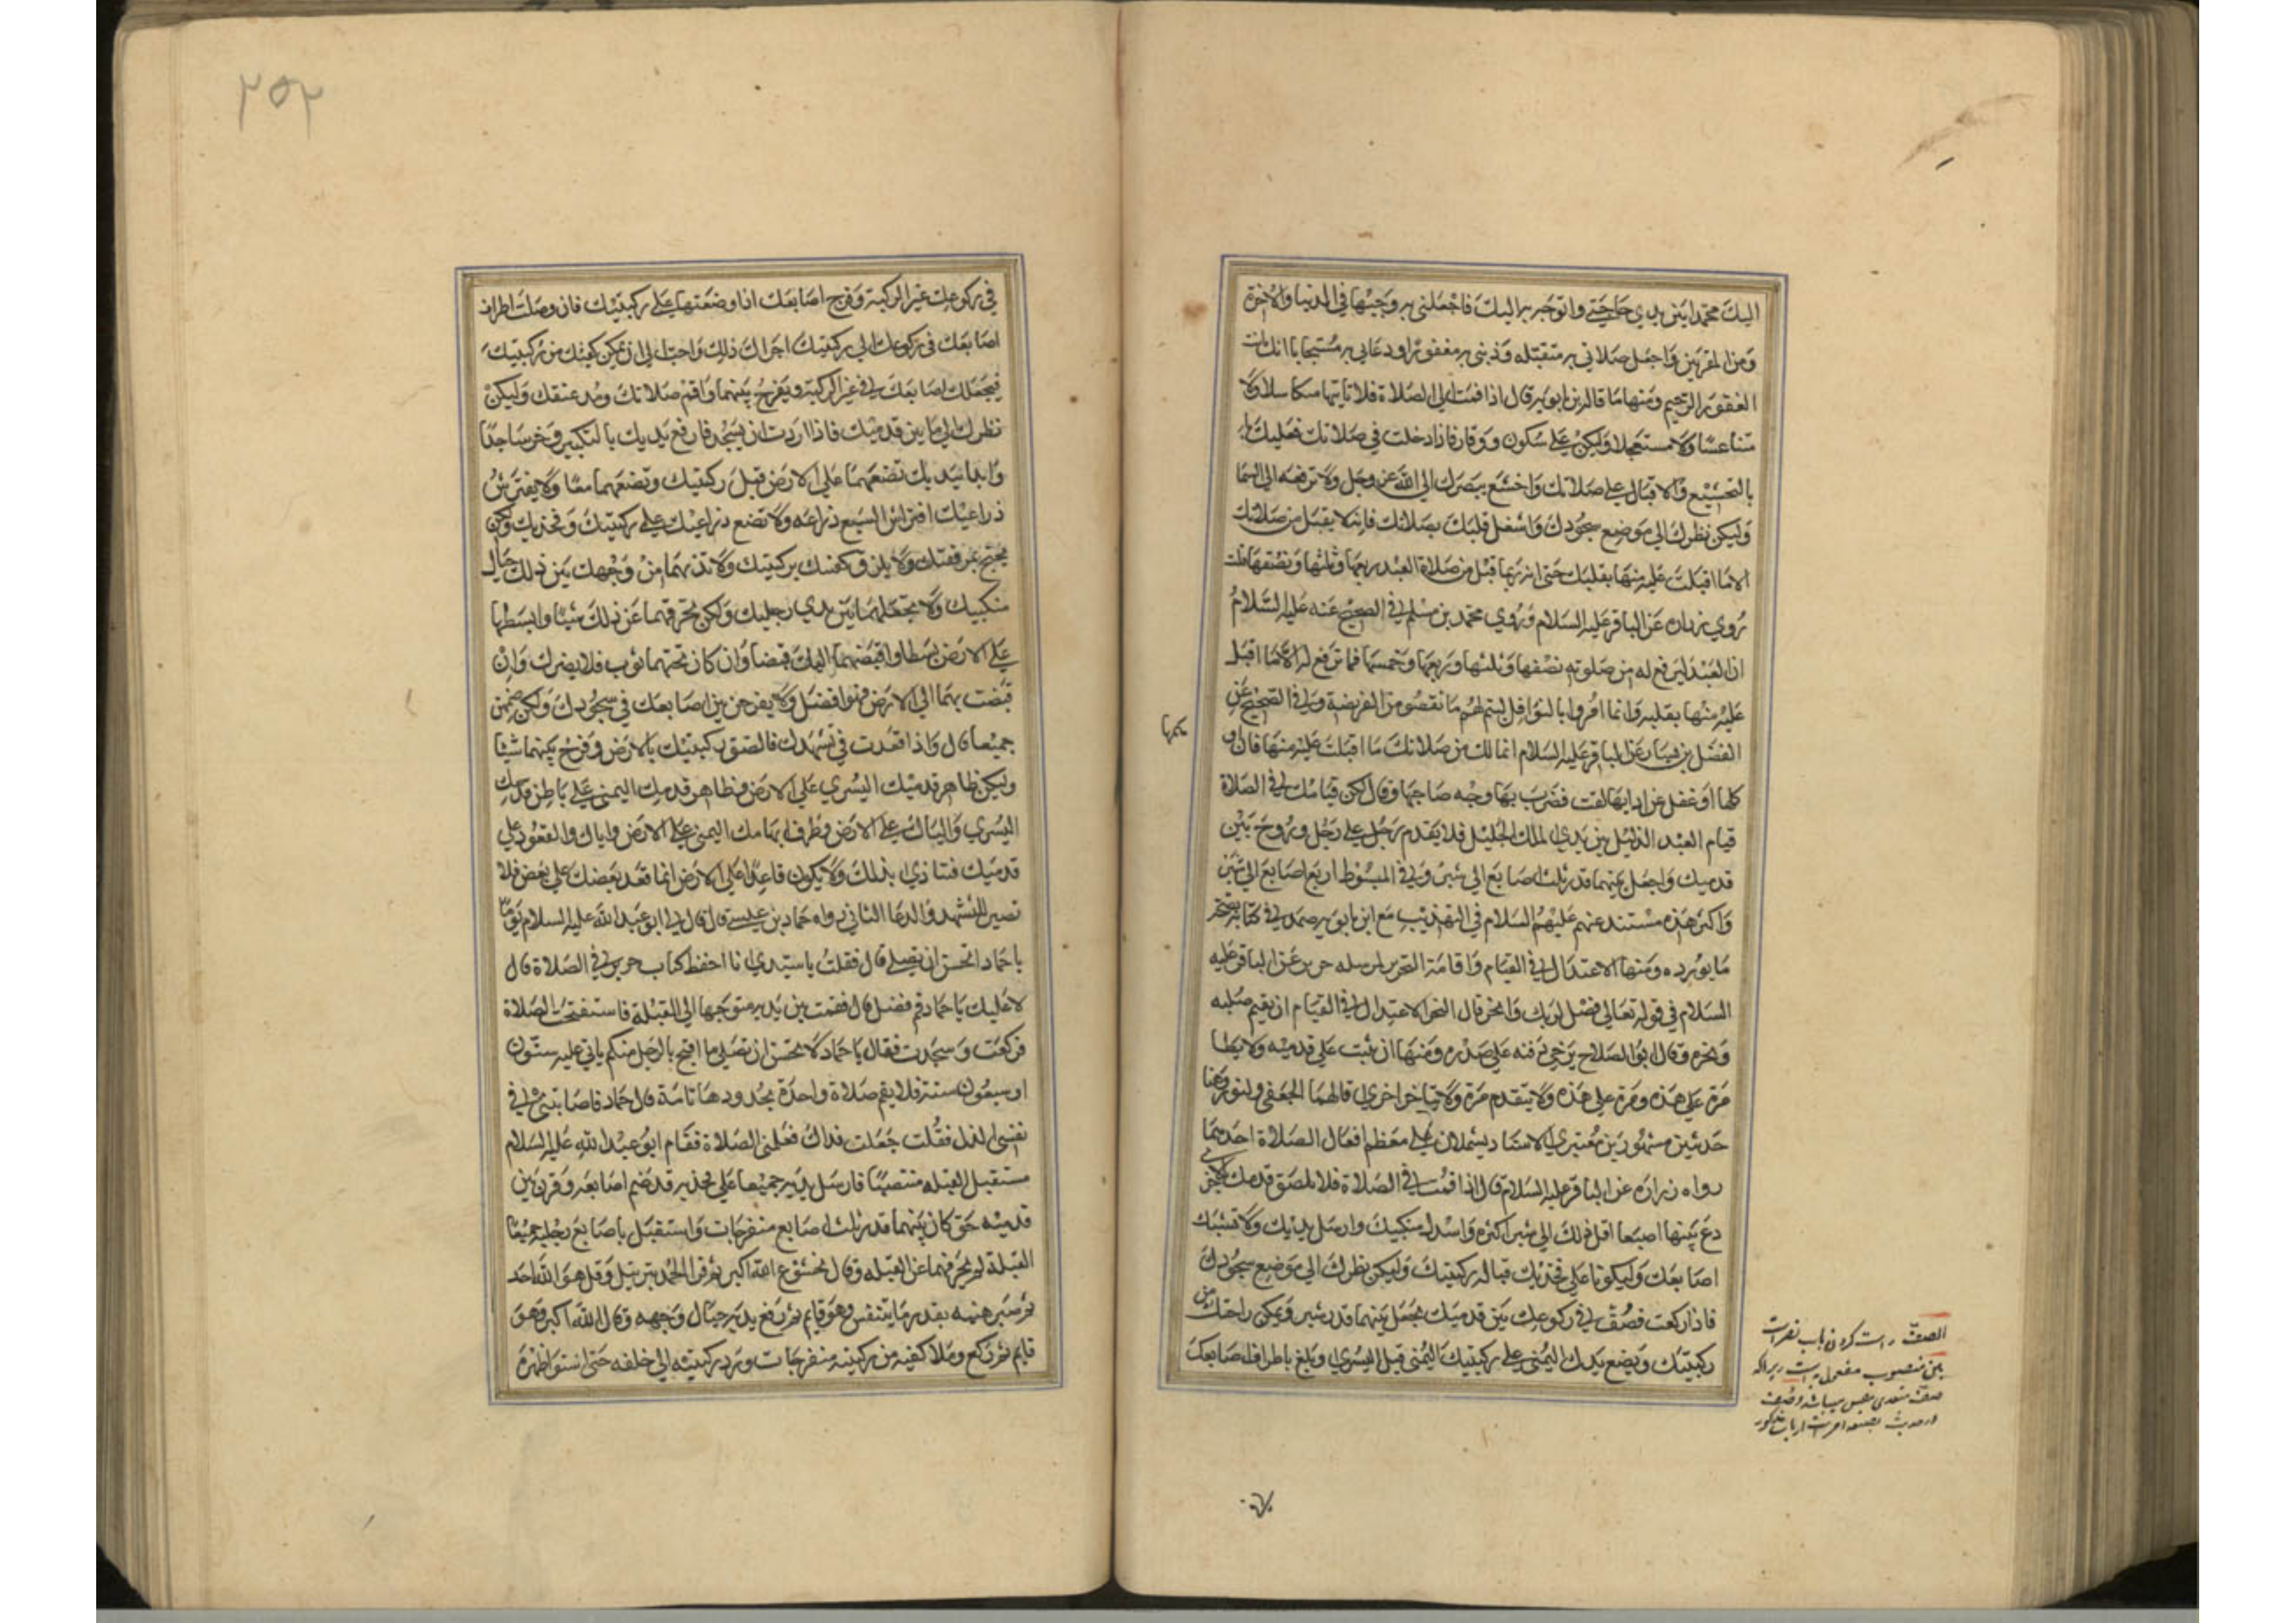 اليك محمدا بين يدي حاجتي واتوجه به اليك فاجعلني به وجيها في الدنيا والاخرة
ومن المقربين واجعل صلاتي به متقبله وذنبي به مغفورا ودعائي به مستجابا انك انت
الغفور الرحيم ومنها ما قاله ابن بابويه قال اذا قمت الي الصلاة فلا تاتها متكاسلا ولا
متناعسا ولا مستعجلا ولكن علي سكون ووقار فاذا دخلت في صلاتك فعليك
بالتخشيع والاقبال علي صلاتك واخشع ببصرك الي الله عز وجل ولا ترفعه الي السما
وليكن نظرك الي موضع سجودك واشغل قلبك بصلاتك فانه لا يقبل من صلاتك
الا ما اقبلت عليه منها بقلبك حتي انه ربما قبل من صلاة العبد ربعها وثلثها ونصفها قلت
روي زراره عن الباقر عليه السلام وروي محمد بن مسلم في الصحيح عنه عليه السلام
ان العبد ليرفع له من صلوته نصفها وثلثها وربعها وخمسها فما ترفع له الا ما اقبل
عليه منها بقلبه وانما امروا بالنوافل ليتم لهم ما نقصوا من الفريضة وفي الصحيح عن
الفضل بن يسار عن الباقر عليه السلام انما لك من صلاتك ما اقبلت عليه منها فان
كلها او غفل عن ادابها لفت فضرب بها وجه صاحبها وقال لكن قيامك في الصلاة
قيام العبد الذليل بين يدي الملك الجليل فلا يقدم رجل علي رجل وروح بين
قدميك واجعل بينهما قدر ثلث اصابع الي شبر وفي المبسوط اربع اصابع الي شبر
واكثر هذه مستند عنهم عليهم السلام في التهذيب مع ابن بابويه في كتابه
ما يورده ومنها الاعتدال في القيام واقامة النحر لمرسله حريز عن الباقر عليه
السلام في قوله تعالي فصل لربك وانحر قال النحر الاعتدال في القيام ان يقيم صلبه
ونحره وقال ابو الصلاح يرخي ذقنه علي صدره ومنها ان يثبت علي قدميه ولا يطا
مرة علي هذه ومرة علي هذه ولا يتقدم مرة ولا يتاخر اخري قالهما الجعفي ولنورد هنا
حديثين مشهورين معتبري الاسناد يشملان علي معظم افعال الصلاة احديهما
رواه زرارة عن الباقر عليه السلام قال اذا قمت في الصلاة فلا تلصق قدمك بالاخري
دع بينهما اصبعا اقل ذلك الي شبر اكثره واسدل منكبيك وارسل يديك ولا تشبك
اصابعك وليكونا علي فخذيك قبالة ركبتيك وليكن نظرك الي موضع سجودك
فاذا ركعت فصف في ركوعك بين قدميك تجعل بينهما قدر شبر وتمكن راحتك من
ركبتيك وتضع يدك اليمني علي ركبتيك اليمني قبل اليسري وبلغ باطراف اصابعك
الصف راست كردن باب نصر است
۲۵۲
في ركوعك عين الركبة وفرج اصابعك اذا وضعتها علي ركبتيك فان وصلت اطراف
اصابعك في ركوعك الي ركبتيك اجزاك ذلك واحب الي ان تمكن كفيك من ركبتيك
فيجعلك اصابعك في عين الركبة ويفرج بينهما واقم صلاتك ومد عنقك وليكن
نظرك الي ما بين قدميك فاذا اردت ان يسجد فارفع يديك بالتكبير وخر ساجدا
وابدا بيديك تضعهما علي الارض قبل ركبتيك وتضعهما معا ولا يفترش
ذراعيك افتراش السبع ذراعه ولا تضع ذراعيك علي ركبتيك وفخذيك ولكن
يجنح بمرفقتك ولا يلزق كفيك بركبتيك ولا تدنهما من وجهك بين ذلك حيال
منكبيك ولا تجعلهما بين يدي رجليك ولكن تحرفهما عن ذلك شيئا وابسطها
علي الارض بسطا واقبضهما اليك قبضا وان كان تحتهما ثوب فلا يضرك وان
قبضت بهما الي الارض فهو افضل ولا يفرجن بين اصابعك في سجودك ولكن ضمهن
جميعا قال واذا قعدت في تشهدك فالصق ركبتيك بالارض وفرج بينهما شيئا
وليكن ظاهر قدميك اليسري علي الارض وظاهر قدمك اليمني علي باطن قدمك
اليسري والياك علي الارض وطرف ابهامك اليمني علي الارض واياك والقعود علي
قدميك فتتاذي بذلك ولا يكون قاعدا علي الارض انما قعد بعضك علي بعض فلا
تصبر للتشهد والدعا الثاني رواه حماد بن عيسي قال قال لي ابو عبد الله عليه السلام يوما
يا حماد اتحسن ان تصلي قال فقلت يا سيدي انا احفظ كتاب حريز في الصلاة قال
لا عليك يا حماد قم فصل قال فقمت بين يديه متوجها الي القبلة فاستفتحت الصلاة
فركعت وسجدت فقال يا حماد لا تحسن ان تصلي ما اقبح بالرجل منكم ياتي عليه ستون
او سبعون سنة فلا يقم صلاة واحدة بحدودها تامة قال حماد فاصابتني في
نفسي الذل فقلت جعلت فداك فعلمني الصلاة فقام ابو عبد الله عليه السلام
مستقبل القبله منتصبا فارسل يديه جميعا علي فخذيه قد ضم اصابعه وقرب بين
قدميه حتي كان بينهما قدر ثلث اصابع منفرجات واستقبل باصابع رجليه جميعا
القبلة لم يحرفهما عن القبله وقال بخشوع الله اكبر ثم قرا الحمد بترتيل وقل هو الله احد
ثم صبر هنيه بقدر ما يتنفس وهو قايم ثم رفع يديه حيال وجهه وقال الله اكبر وهو
قايم ثم ركع وملا كفيه من ركبتيه منفرجات ورد ركبتيه الي خلفه حتي استوا ظهره